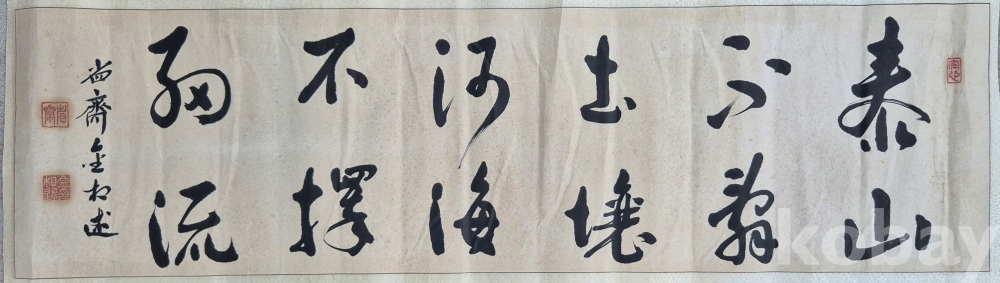 泰山
不辭
土壤
河海
不擇
細流
省齋金相述
kobay